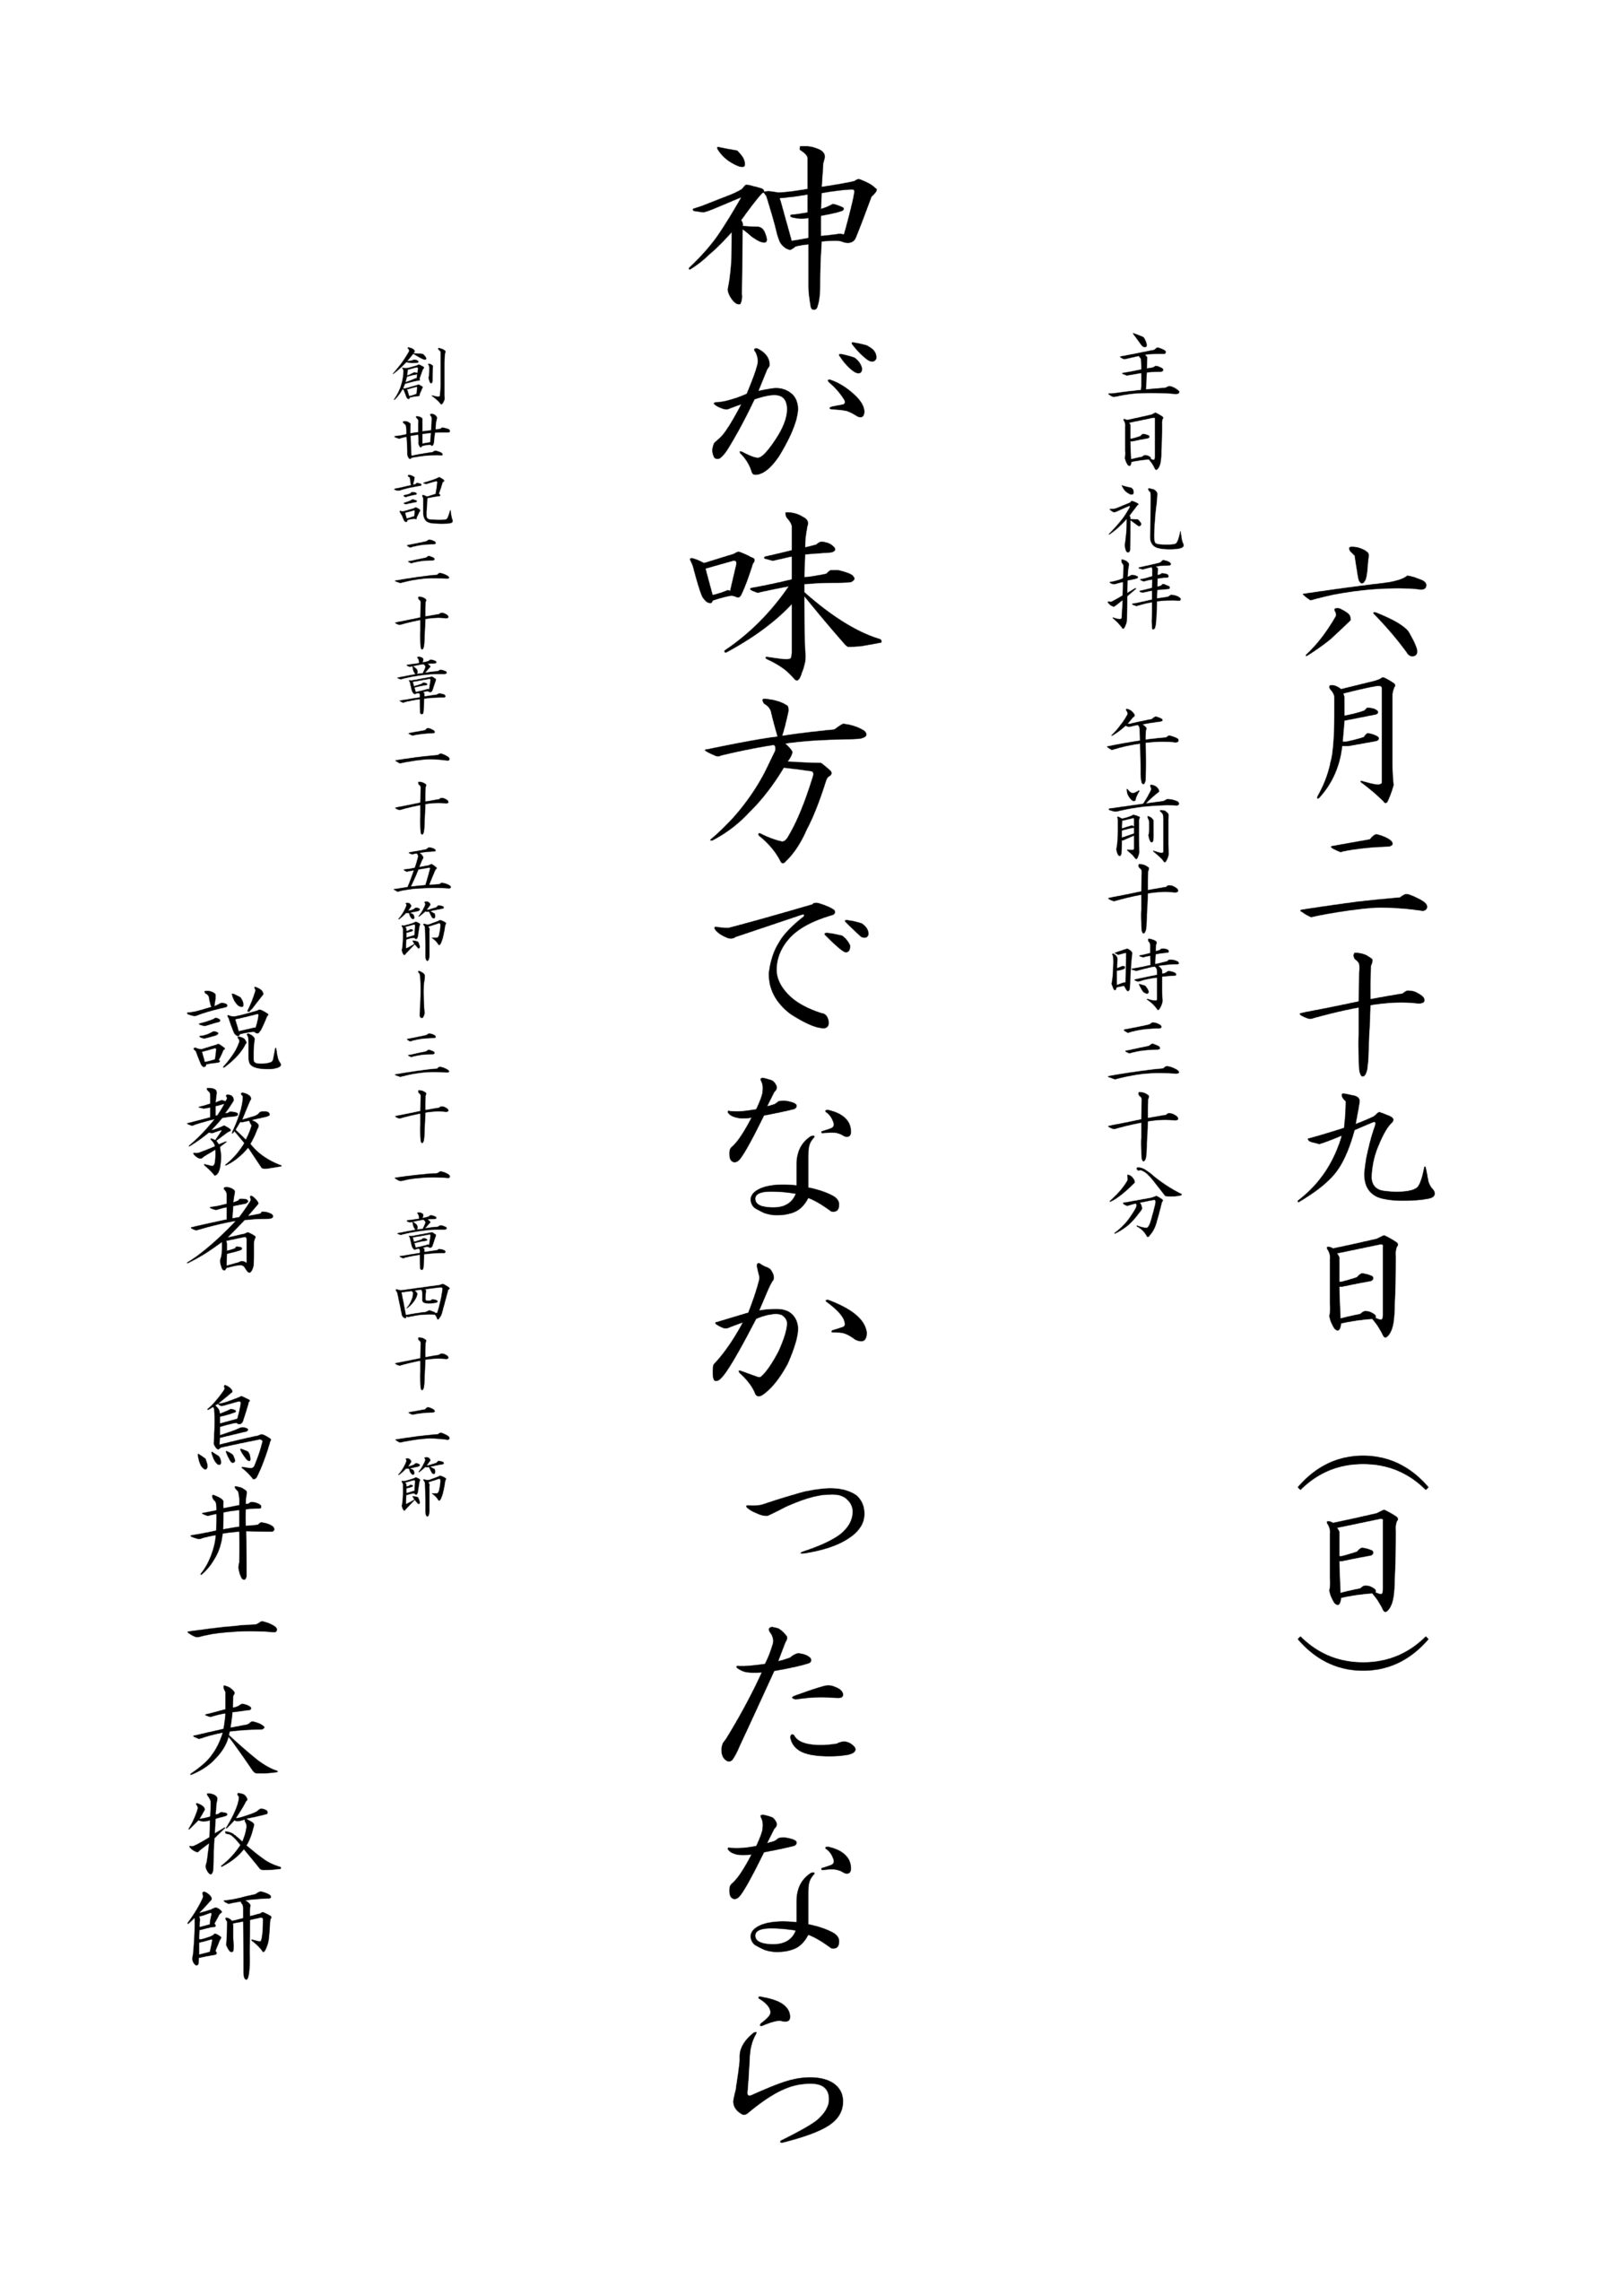 六月二十九日 （日）
主日礼拝 午前十時三十分
神が味方でなかったなら
創世記三十章二十五節―三十一章四十二節
説教者 鳥井一夫牧師